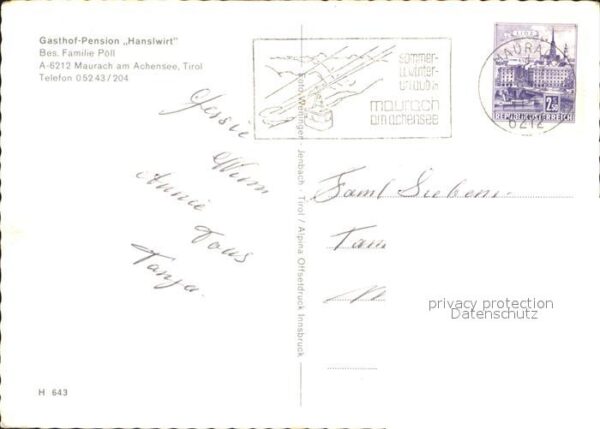 Gasthof-Pension „Hanslwirt"
Bes. Familie Pöll
A-6212 Maurach am Achensee, Tirol
Telefon 05243/204
sommer-
u. winter-
urlaub in
maurach
am achensee
LINZ
MAURA
2.50
REPUBLIK ÖSTERREICH
6212
Jessie
Wim
Annie
Tous
Tanja.
Foto Weninger - Jenbach - Tirol / Alpina Offsetdruck Innsbruck
Faml
privacy protection
Datenschutz
H 643